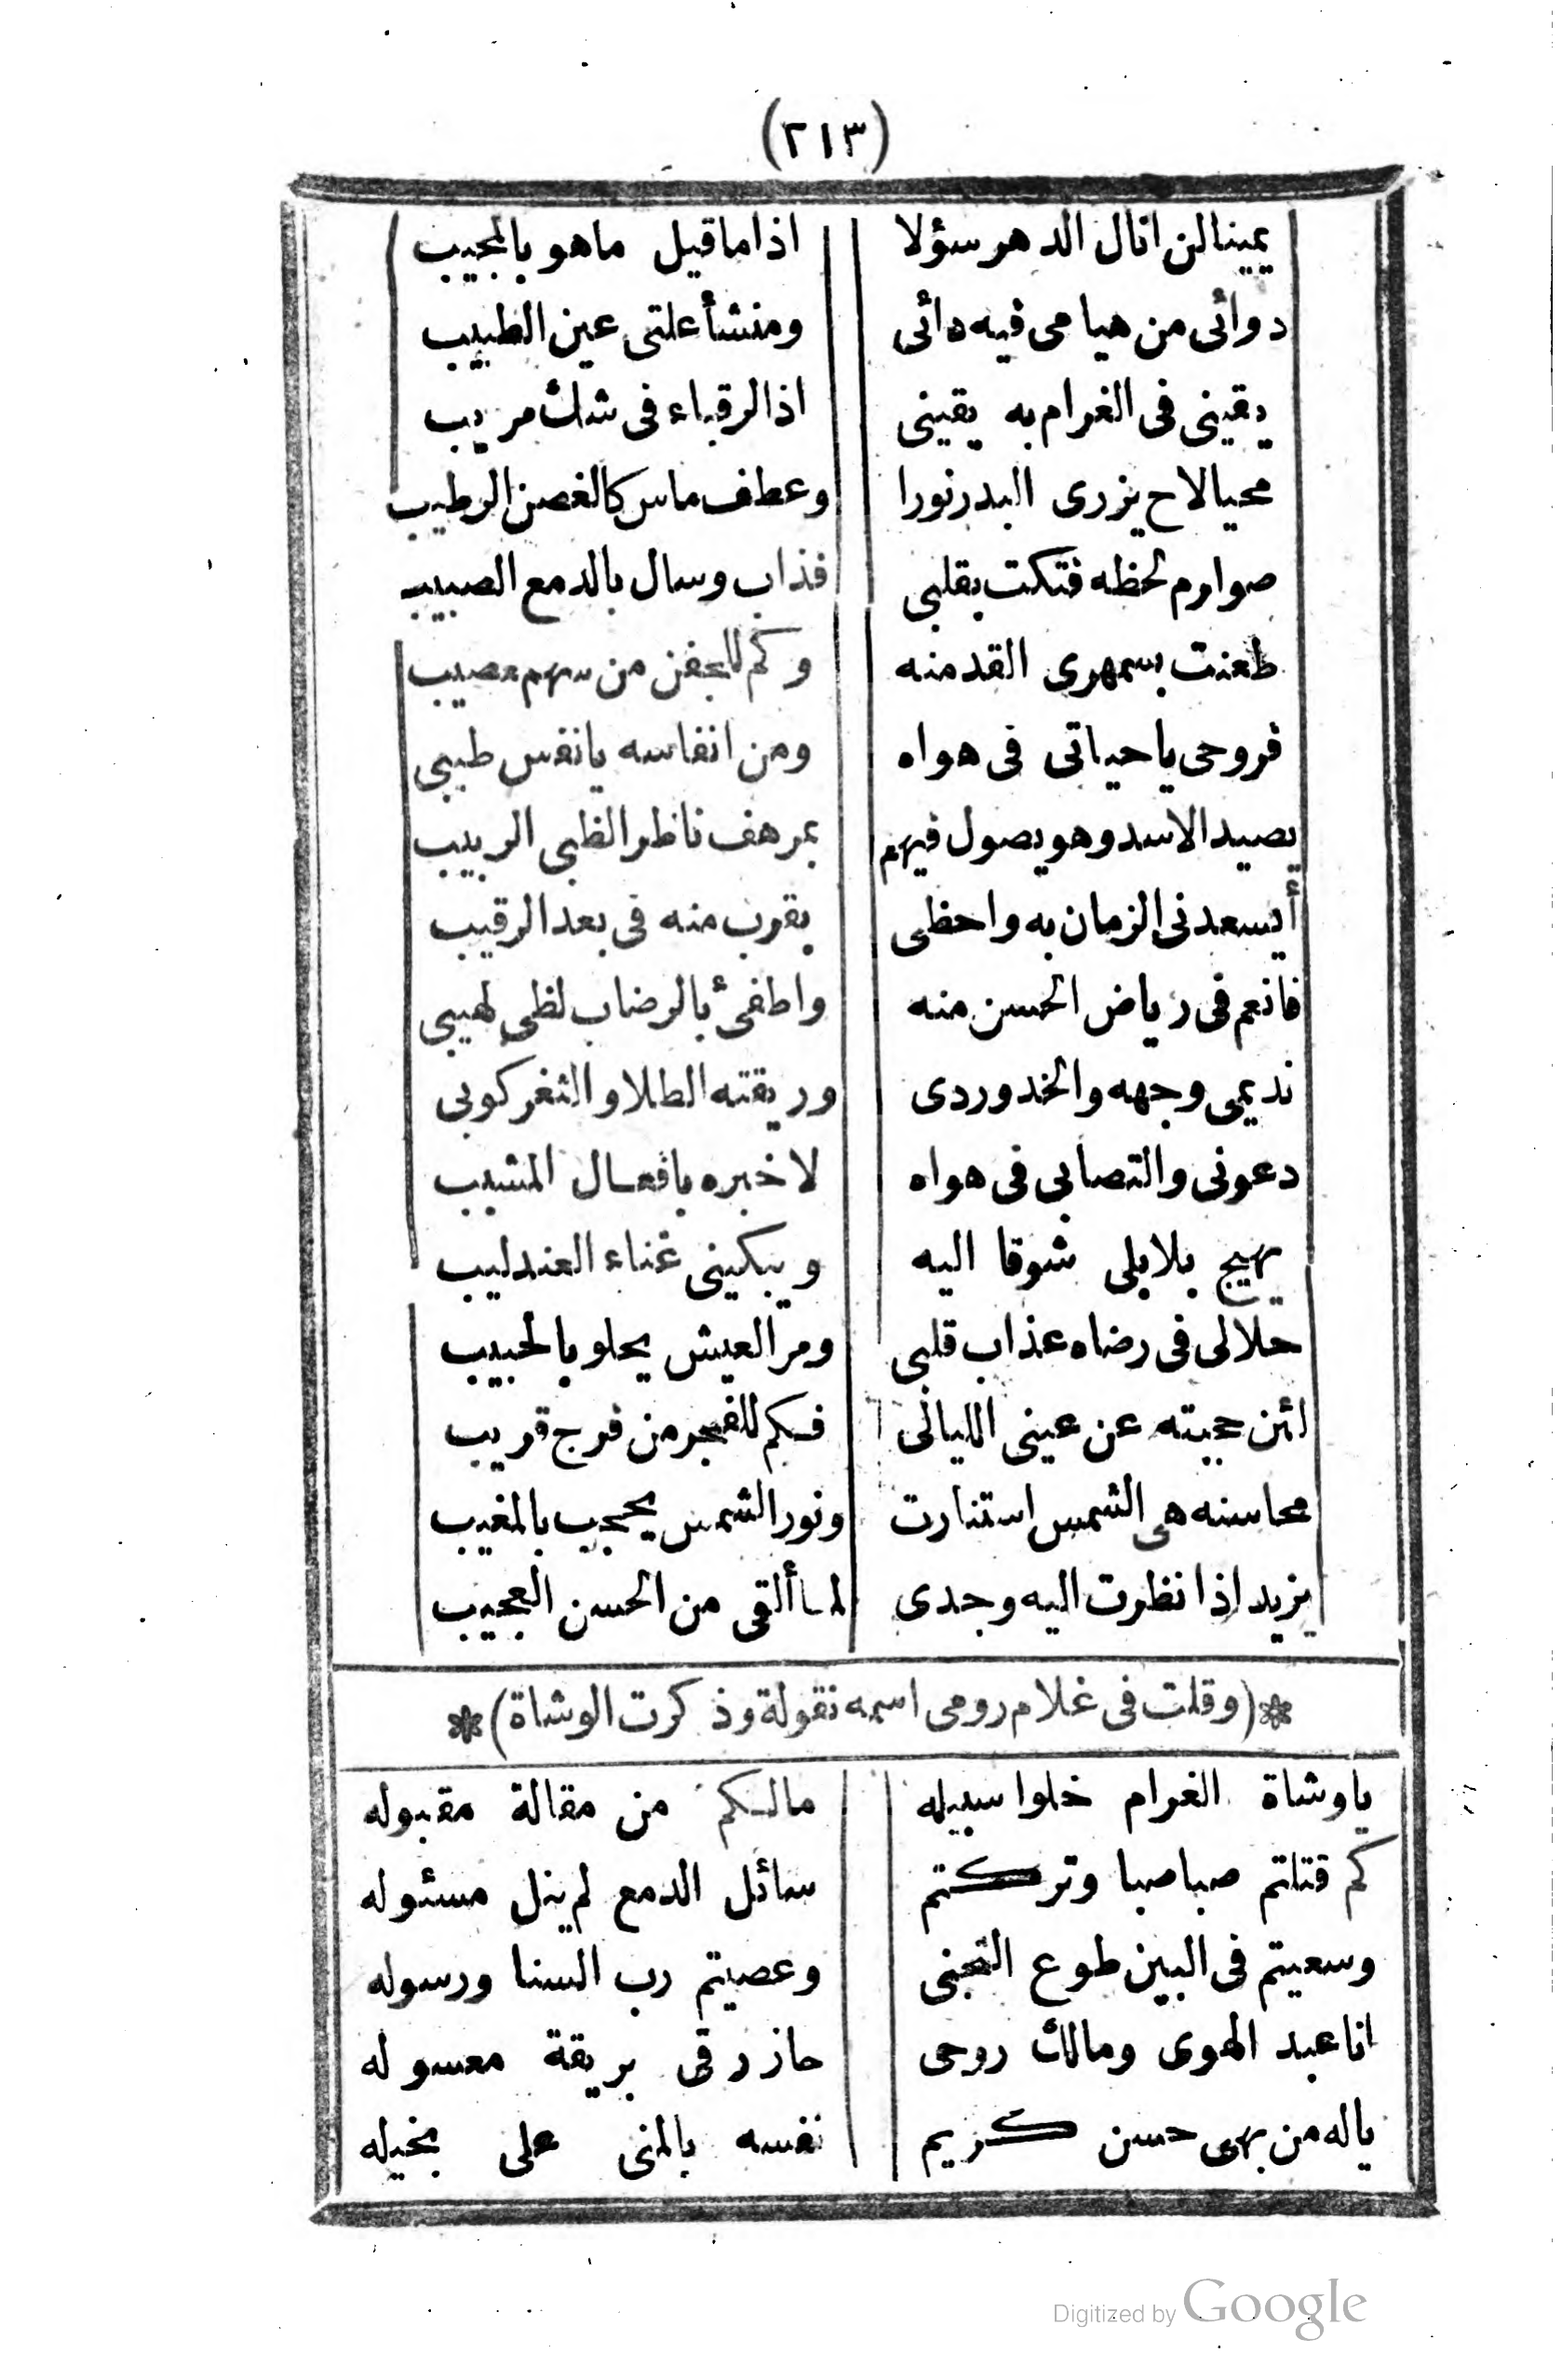 (٢١٣)
يمينا لن انال الدهر سؤلا اذا ما قيل ماهو بالمجيب
دوائى من هيامى فيه دائى ومنشأ علتى عين الطبيب
يقينى فى الغرام به يقينى اذا الرقباء فى شك مريب
محيا لاح يزرى البدر نورا وعطف ماس كالغصن الرطيب
صوارم لحظه فتكت بقلبى فذاب وسال بالدمع الصبيب
طعنت بسمهرى القد منه وكم للجفن من سهم مصيب
فروحى يا حياتى فى هواه ومن انفاسه يا نفس طيبى
يصيد الاسد وهو يصول فيهم بمرهف ناظر الظبى الربيب
أيسعدنى الزمان به واحظى بقرب منه فى بعد الرقيب
فانعم فى رياض الحسن منه واطفئ بالرضاب لظى لهيبى
نديمى وجهه والخد وردى وريقته الطلا والثغر كوبى
دعونى والتصابى فى هواه لاخبره بافعال المشيب
يهيج بلابلى شوقا اليه ويبكينى غناء العندليب
حلالى فى رضاه عذاب قلبى ومر العيش يحلو بالحبيب
لئن حجبته عن عينى الليالى فكم للفجر من فرج قريب
محاسنه هى الشمس استنارت ونور الشمس يحجب بالمغيب
يزيد اذا نظرت اليه وجدى لما ألقى من الحسن العجيب
*(وقلت فى غلام رومى اسمه نقولة وذكرت الوشاة)*
ياوشاة الغرام خلوا سبيله مالكم من مقالة مقبوله
كم قتلتم صبا صبا وتركتم سائل الدمع لم ينل مسئوله
وسعيتم فى البين طوع التجنى وعصيتم رب السنا ورسوله
انا عبد الهوى ومالك روحى حاز رقى بريقة معسوله
ياله من بهى حسن كريم نفسه بالمنى على بخيله
Digitized by Google